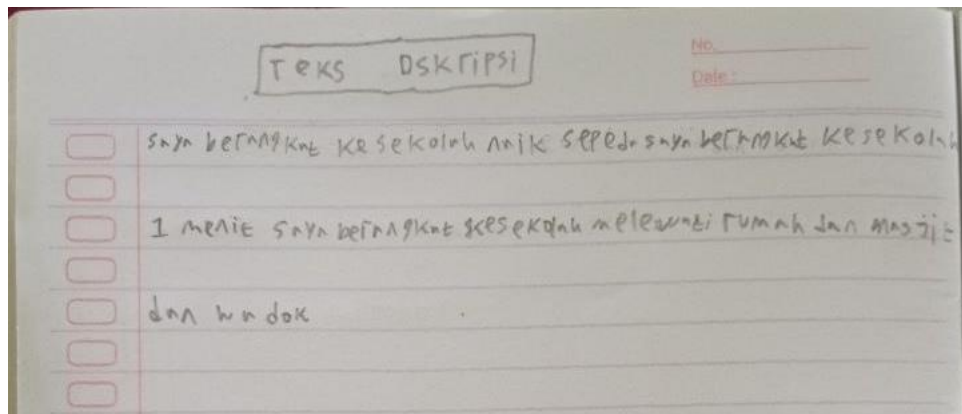 Teks Dskripsi
No.
Date :
saya berangkat ke sekolah naik sepeda saya berangkat ke sekolah
1 menit saya berangkat kesekolah melewati rumah dan masjit
dan wadok